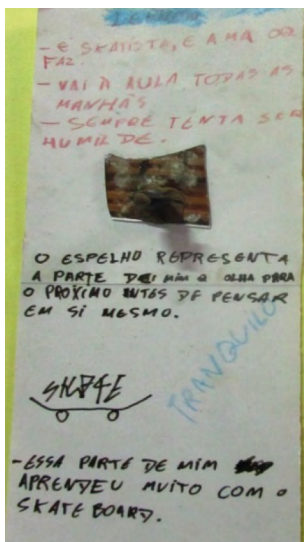 - É SKATISTE, E AMA OQ
FAZ.
- VAI À AULA TODAS AS
MANHÃS
- SEMPRE TENTA SER
HUMILDE.
O ESPELHO REPRESENTA
A PARTE DE MIM Q OLHA PARA
O PRÓXIMO ANTES DE PENSAR
EM SI MESMO.
TRANQUILO
SKATE
- ESSA PARTE DE MIM
APRENDEU MUITO COM O
SKATEBOARD.